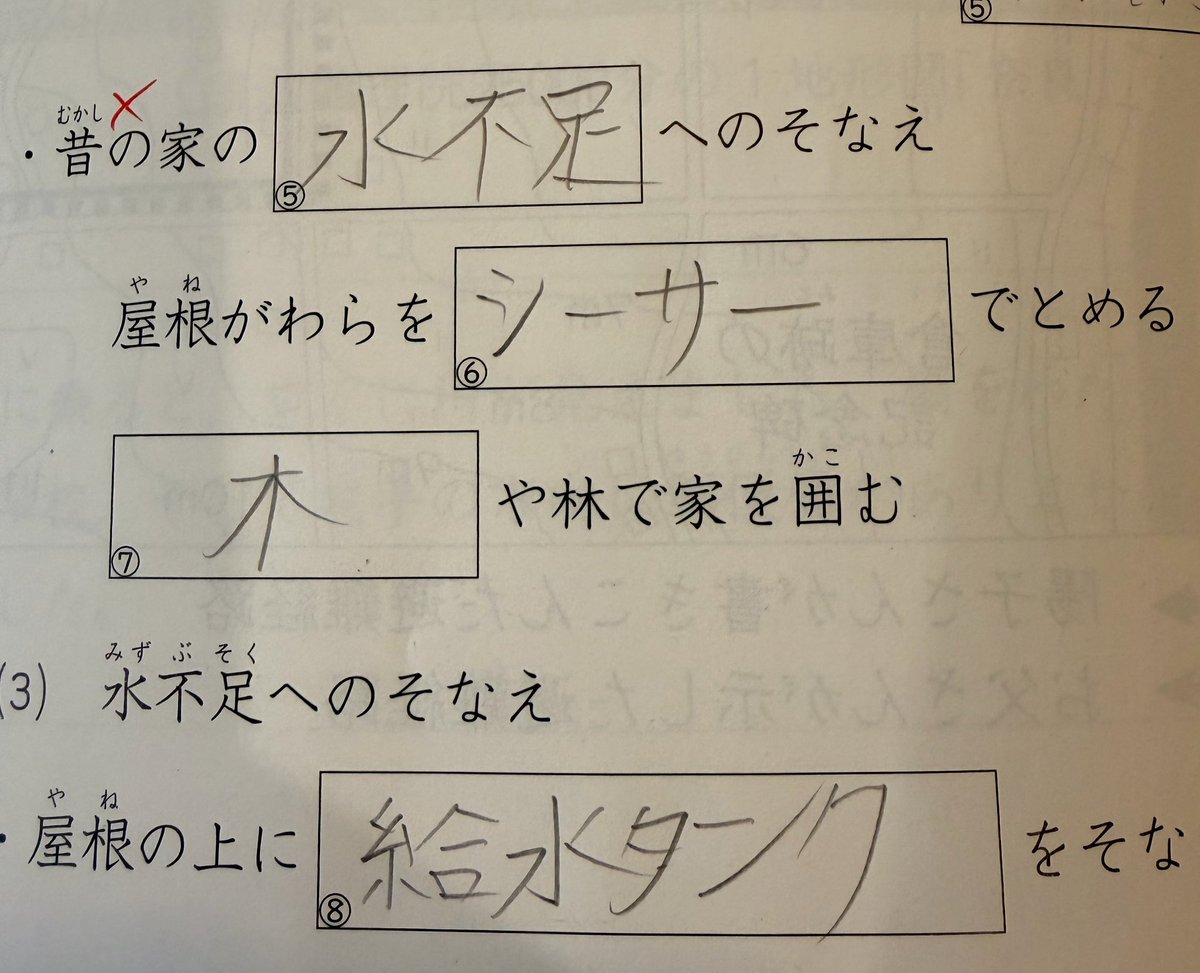 ⑤
・昔の家の 水不足 へのそなえ
むかし
⑤
屋根がわらを シーサー でとめる
やね
⑥
木 や林で家を囲む
かこ
⑦
(3) 水不足へのそなえ
みずぶそく
・屋根の上に 給水タンク をそな
やね
⑧